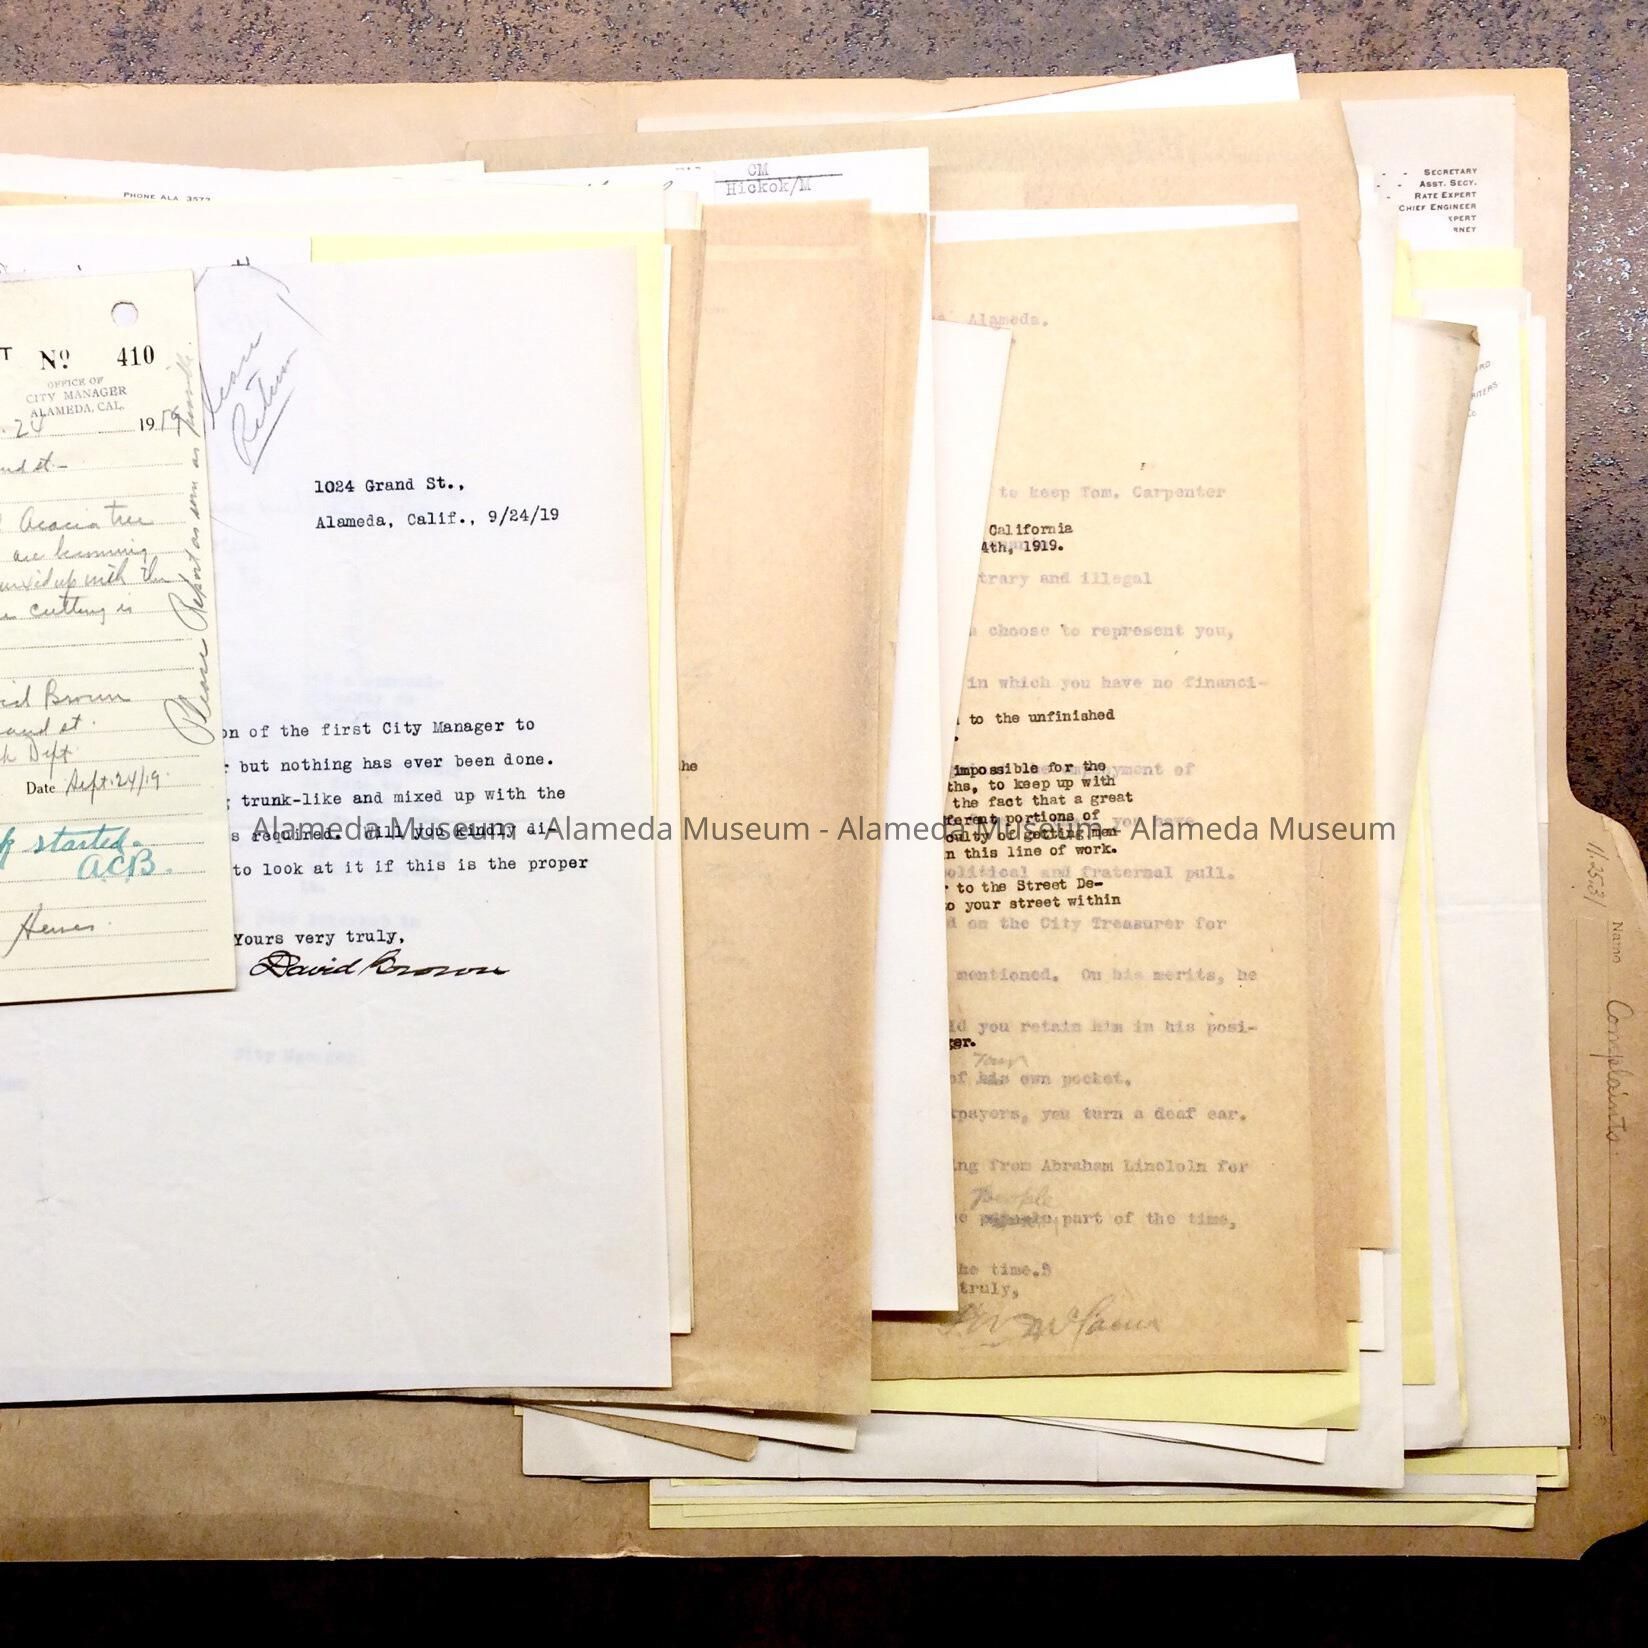 PHONE ALA. 3577
T No 410
OFFICE OF
CITY MANAGER
ALAMEDA, CAL.
24 1919
and st-
Acacia tree
are becoming
mixed up with the
cutting is
David Brown
Grand st.
Dept
Date Sept. 24/19.
started.
ACB.
Please Report as soon as possible.
Please
Return
1024 Grand St.,
Alameda, Calif., 9/24/19
on of the first City Manager to
but nothing has ever been done.
trunk-like and mixed up with the
s required. Will you kindly di-
to look at it if this is the proper
Yours very truly,
David Brown
City Manager
he
CM
Hickok/M
Alameda.
to keep Tom. Carpenter
trary and illegal
choose to represent you,
in which you have no financi-
employment of
you have
political and fraternal pull.
d on the City Treasurer for
mentioned. On his merits, he
ld you retain him in his posi-
Tom
of his own pocket.
payers, you turn a deaf ear.
ing from Abraham Lincololn for
People
part of the time,
he time.5
truly,
California
4th, 1919.
to the unfinished
impossible for the
ths, to keep up with
the fact that a great
ferent portions of
culty of getting men
n this line of work.
r to the Street De-
o your street within
ger.
SECRETARY
ASST. SECY.
RATE EXPERT
CHIEF ENGINEER
XPERT
RNEY
11.2531
Name Complaints.
Alameda Museum - Alameda Museum - Alameda Museum - Alameda Museum